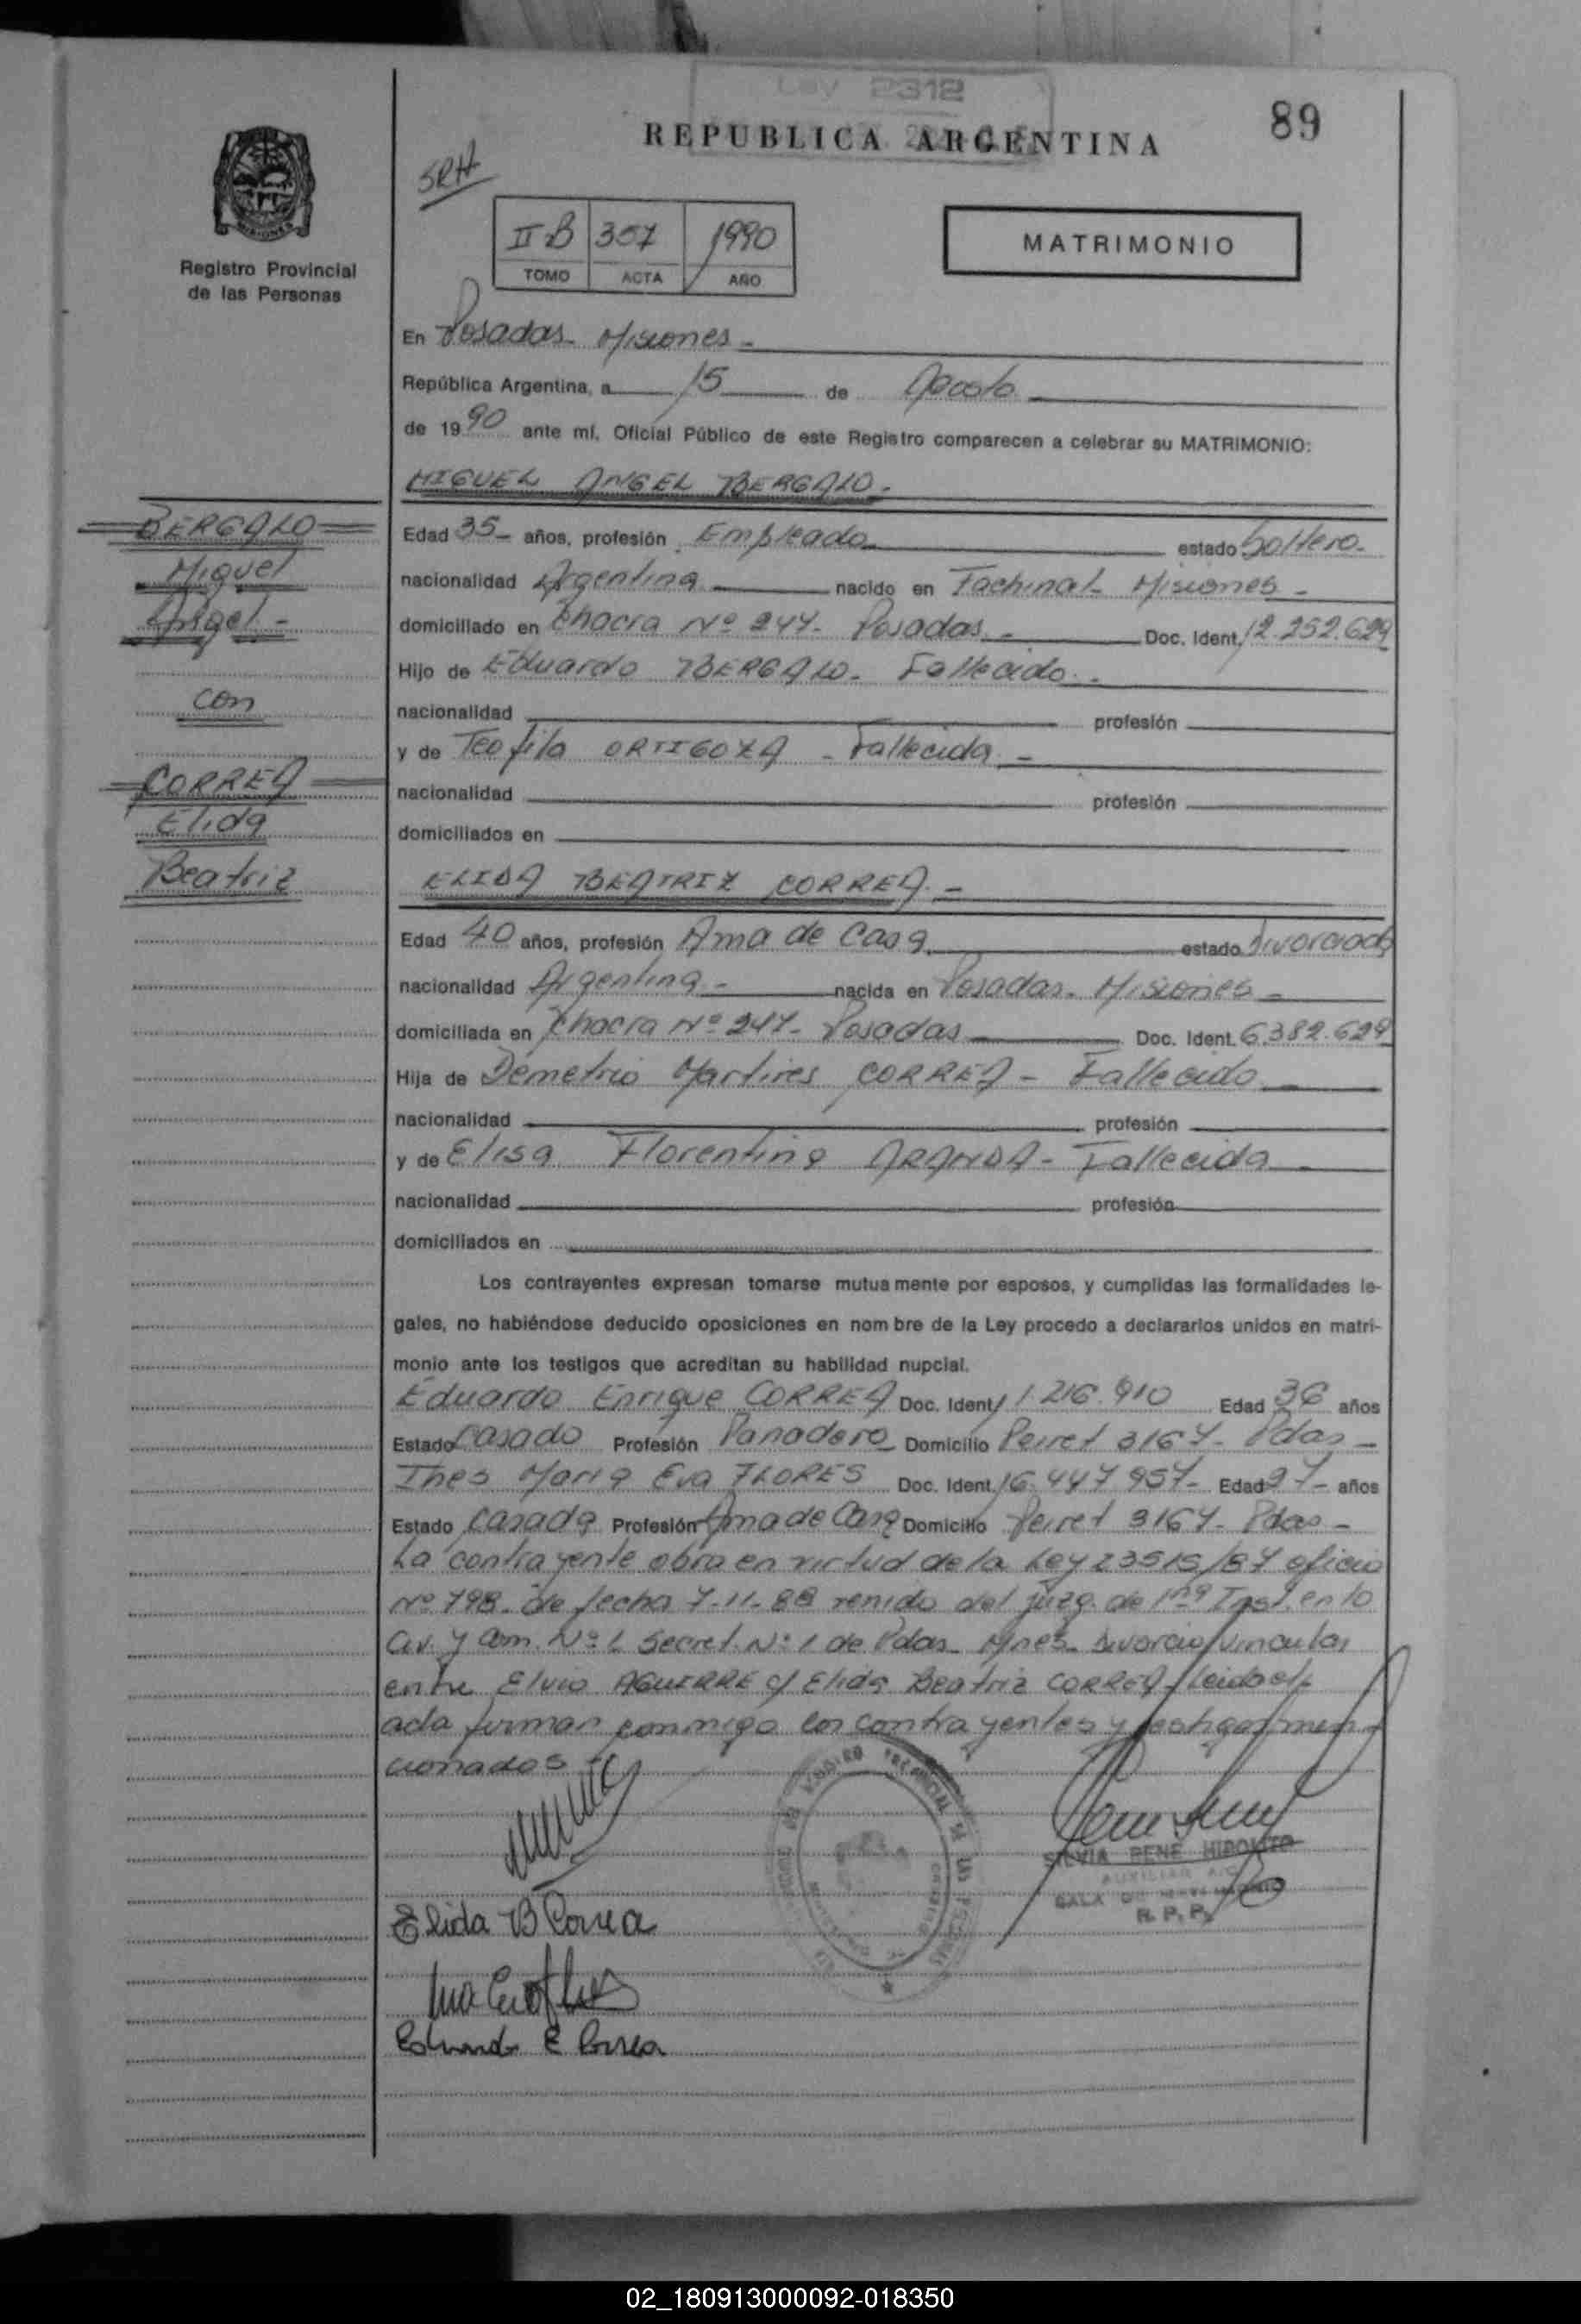 Ley 2312
89
REPUBLICA ARGENTINA
SRH
II B 357 1990
TOMO ACTA AÑO
MATRIMONIO
Registro Provincial
de las Personas
En Posadas - Misiones -
República Argentina, a 15 de Agosto
de 1990 ante mí, Oficial Público de este Registro comparecen a celebrar su MATRIMONIO:
MIGUEL ANGEL BERGALO.-
BERGALO
Miguel
Angel -
con
CORREA
Elida
Beatriz
Edad 35- años, profesión Empleado estado Soltero.
nacionalidad Argentina nacido en Fachinal - Misiones -
domiciliado en Chacra Nº 247- Posadas.- Doc. Ident. 12.252.629
Hijo de Eduardo BERGALO - Fallecido.-
nacionalidad profesión
y de Teofila ORTIGOZA - Fallecida.-
nacionalidad profesión
domiciliados en
ELIDA BEATRIZ CORREA.-
Edad 40 años, profesión Ama de Casa estado divorciada
nacionalidad Argentina - nacida en Posadas - Misiones -
domiciliada en Chacra Nº 247- Posadas Doc. Ident. 6.382.629
Hija de Demetrio Martires CORREA - Fallecido
nacionalidad profesión
y de Elisa Florentina ARANDA - Fallecida
nacionalidad profesión
domiciliados en
Los contrayentes expresan tomarse mutuamente por esposos, y cumplidas las formalidades le-
gales, no habiéndose deducido oposiciones en nombre de la Ley procedo a declararlos unidos en matri-
monio ante los testigos que acreditan su habilidad nupcial.
Eduardo Enrique CORREA Doc. Ident. 11.216.910 Edad 36 años
Estado Casado Profesión Panadero Domicilio Peiret 3167- Pdas -
Ines Maria Eva FLORES Doc. Ident. 16.447.957- Edad 27- años
Estado Casada Profesión Ama de Casa Domicilio Peiret 3167- Pdas -
La contrayente obra en virtud de la Ley 23515/87 oficio
Nº 798. de fecha 7-11-88 venido del juzg. de 1ra Inst. en lo
Civ. y Com. Nº 1 Secret. Nº 1 de Pdas - Mnes - divorcio vincular
entre Elvio AGUIRRE c/ Elida Beatriz CORREA - Leida el
acta firman conmigo los contrayentes y testigos men
cionados -
SILVIA RENE HIPOLITO
AUXILIAR
SALA DE
R. P. P.
Elida B Correa
Eduardo E Correa
02_180913000092-018350